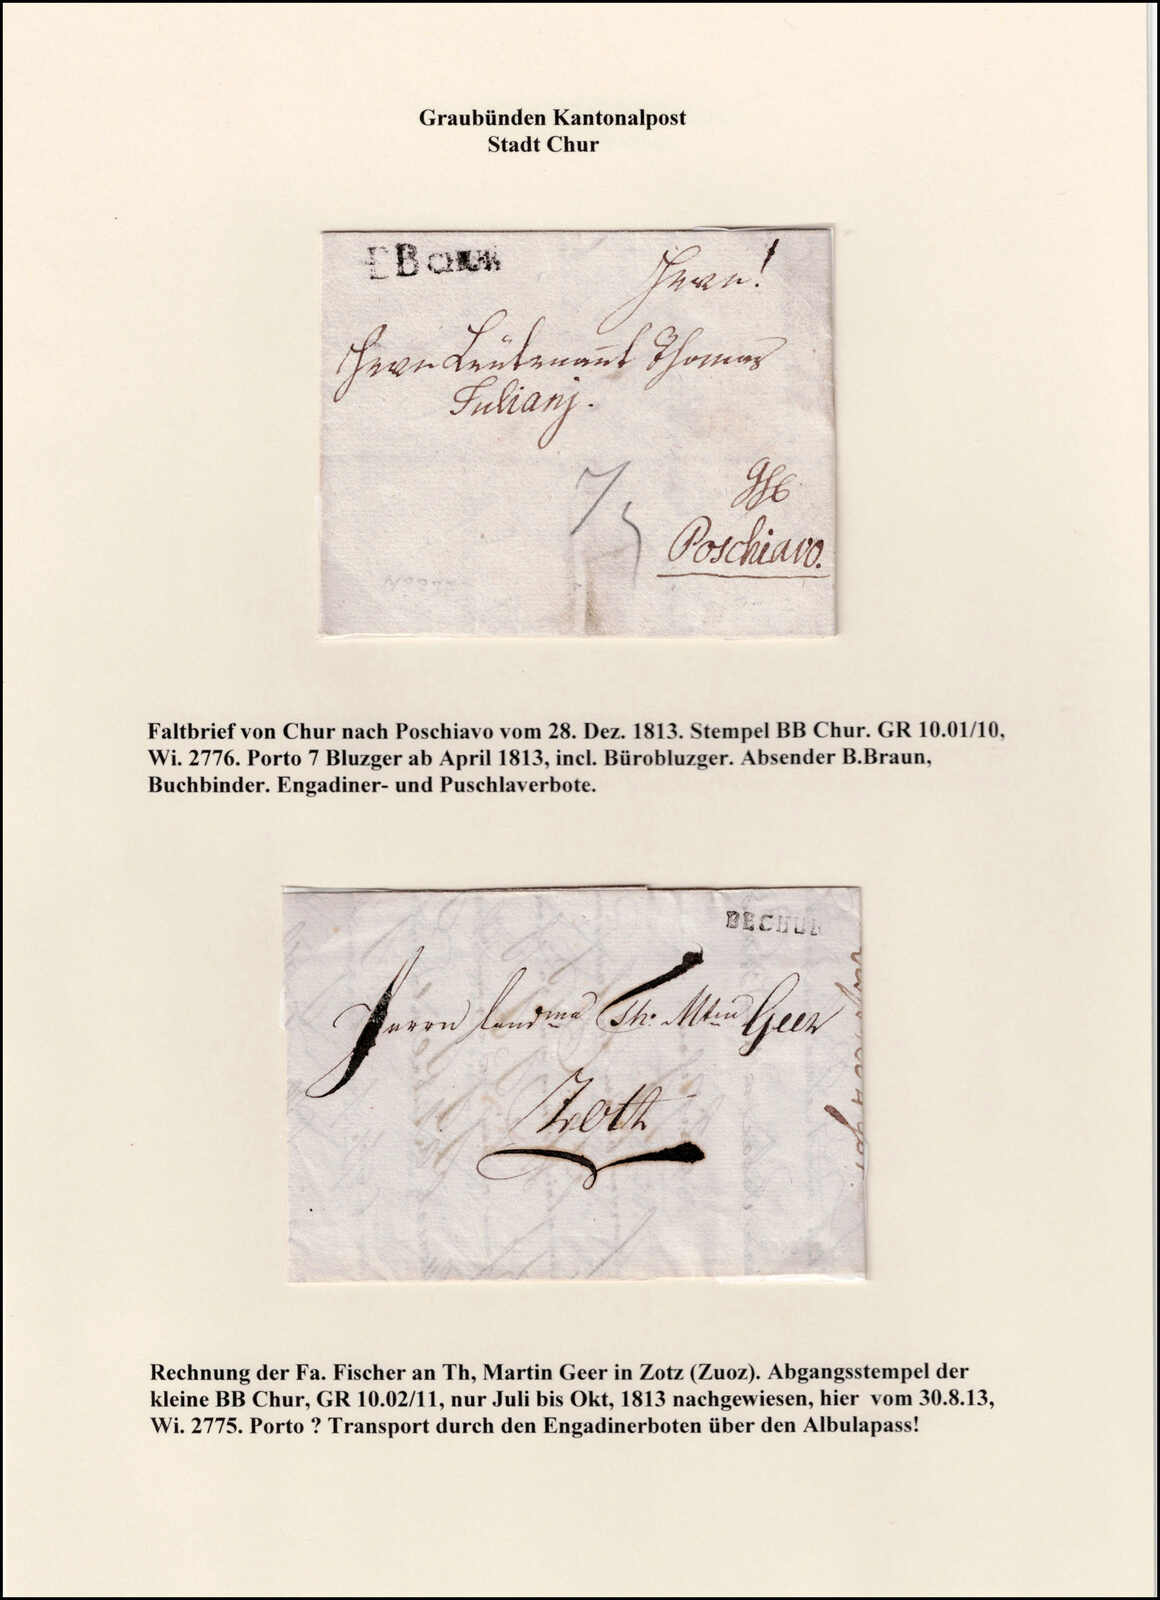 Graubünden Kantonalpost
Stadt Chur
BB CHUR
Herrn!
Herrn Leütenant Thomas
Julianj.
7
Poschiavo.
Faltbrief von Chur nach Poschiavo vom 28. Dez. 1813. Stempel BB Chur. GR 10.01/10,
Wi. 2776. Porto 7 Bluzger ab April 1813, incl. Bürobluzger. Absender B.Braun,
Buchbinder. Engadiner- und Puschlaverbote.
BBCHUR
Herrn Landma Th: Mtin Geer
Zotz
Rechnung der Fa. Fischer an Th, Martin Geer in Zotz (Zuoz). Abgangsstempel der
kleine BB Chur, GR 10.02/11, nur Juli bis Okt, 1813 nachgewiesen, hier vom 30.8.13,
Wi. 2775. Porto ? Transport durch den Engadinerboten über den Albulapass!